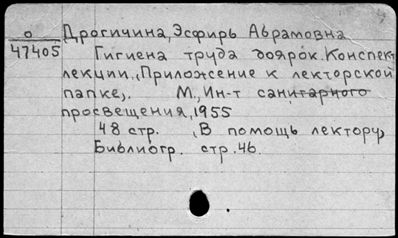 о Дрогичина, Эсфирь Абрамовна
47405 Гигиена труда доярок. Конспект
лекции. (Приложение к лекторской
папке). М., Ин-т санитарного
просвещения, 1955
48 стр. (В помощь лектору)
Библиогр. стр. 46.